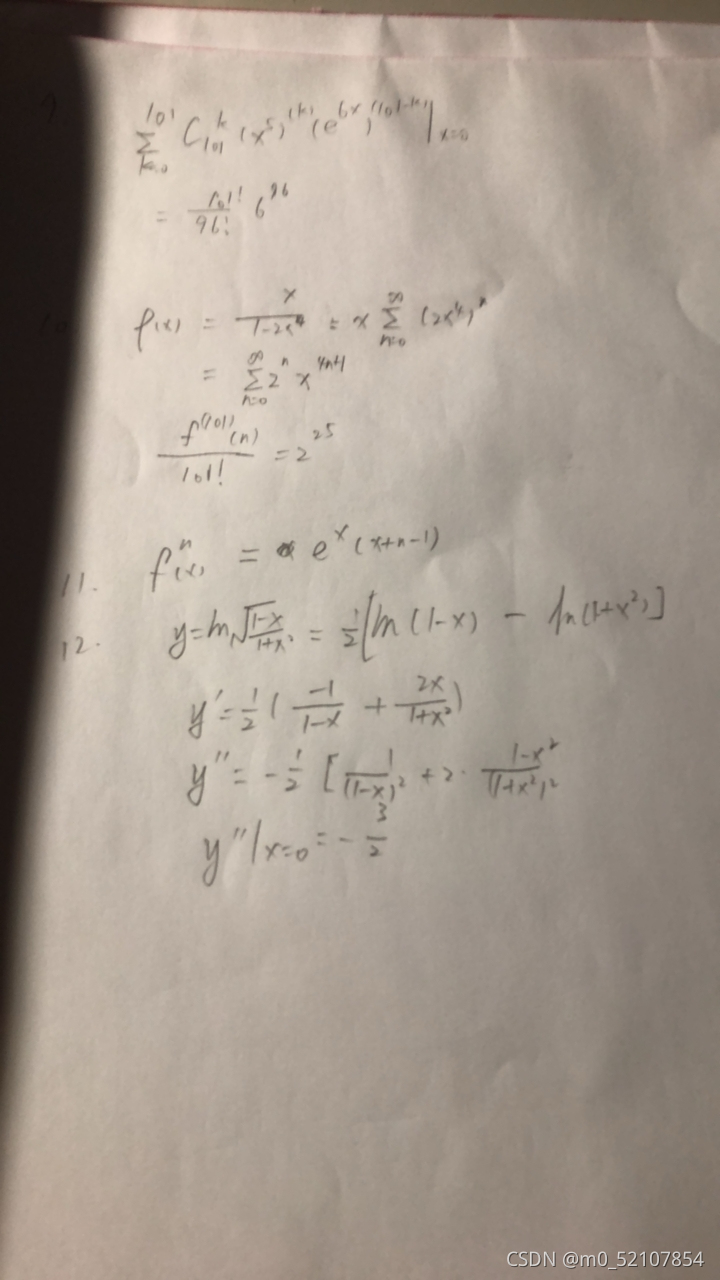 \sum_{k=0}^{101} C_{101}^{k} (x^5)^{(k)} (e^{6x})^{(101-k)} |_{x=0}
= \frac{101!}{96!} 6^{96}
f(x) = \frac{x}{1-2x^4} = x \sum_{n=0}^{\infty} (2x^4)^n
= \sum_{n=0}^{\infty} 2^n x^{4n+1}
\frac{f^{(101)}(n)}{101!} = 2^{25}
11. f^{n}(x) = e^x (x+n-1)
12. y = ln \sqrt{\frac{1-x}{1+x^2}} = \frac{1}{2} [ln(1-x) - ln(1+x^2)]
y' = \frac{1}{2} ( \frac{-1}{1-x} + \frac{2x}{1+x^2} )
y'' = -\frac{1}{2} [ \frac{1}{(1-x)^2} + 2 \cdot \frac{1-x^2}{(1+x^2)^2}
y''|_{x=0} = -\frac{3}{2}
CSDN @m0_52107854